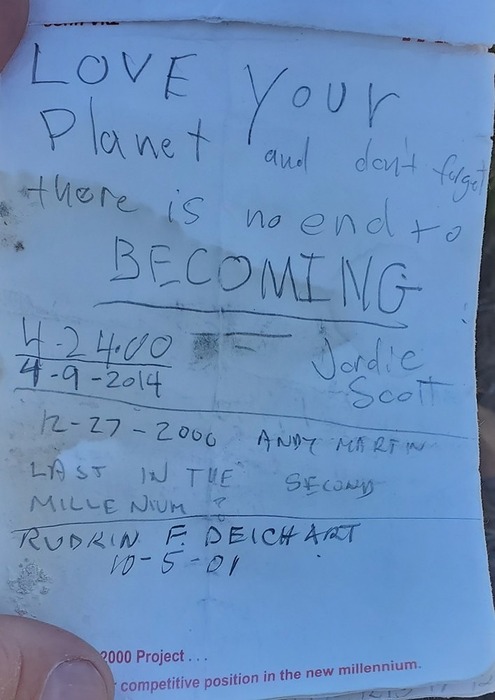 LOVE Your
Planet and don't forget
there is no end to
BECOMING
4-24-00
Jordie
4-9-2014
Scott
12-27-2000 ANDY MARTIN
LAST IN THE SECOND
MILLENIUM ?
RUDKIN F. DEICHART
10-5-01
2000 Project ...
competitive position in the new millennium.